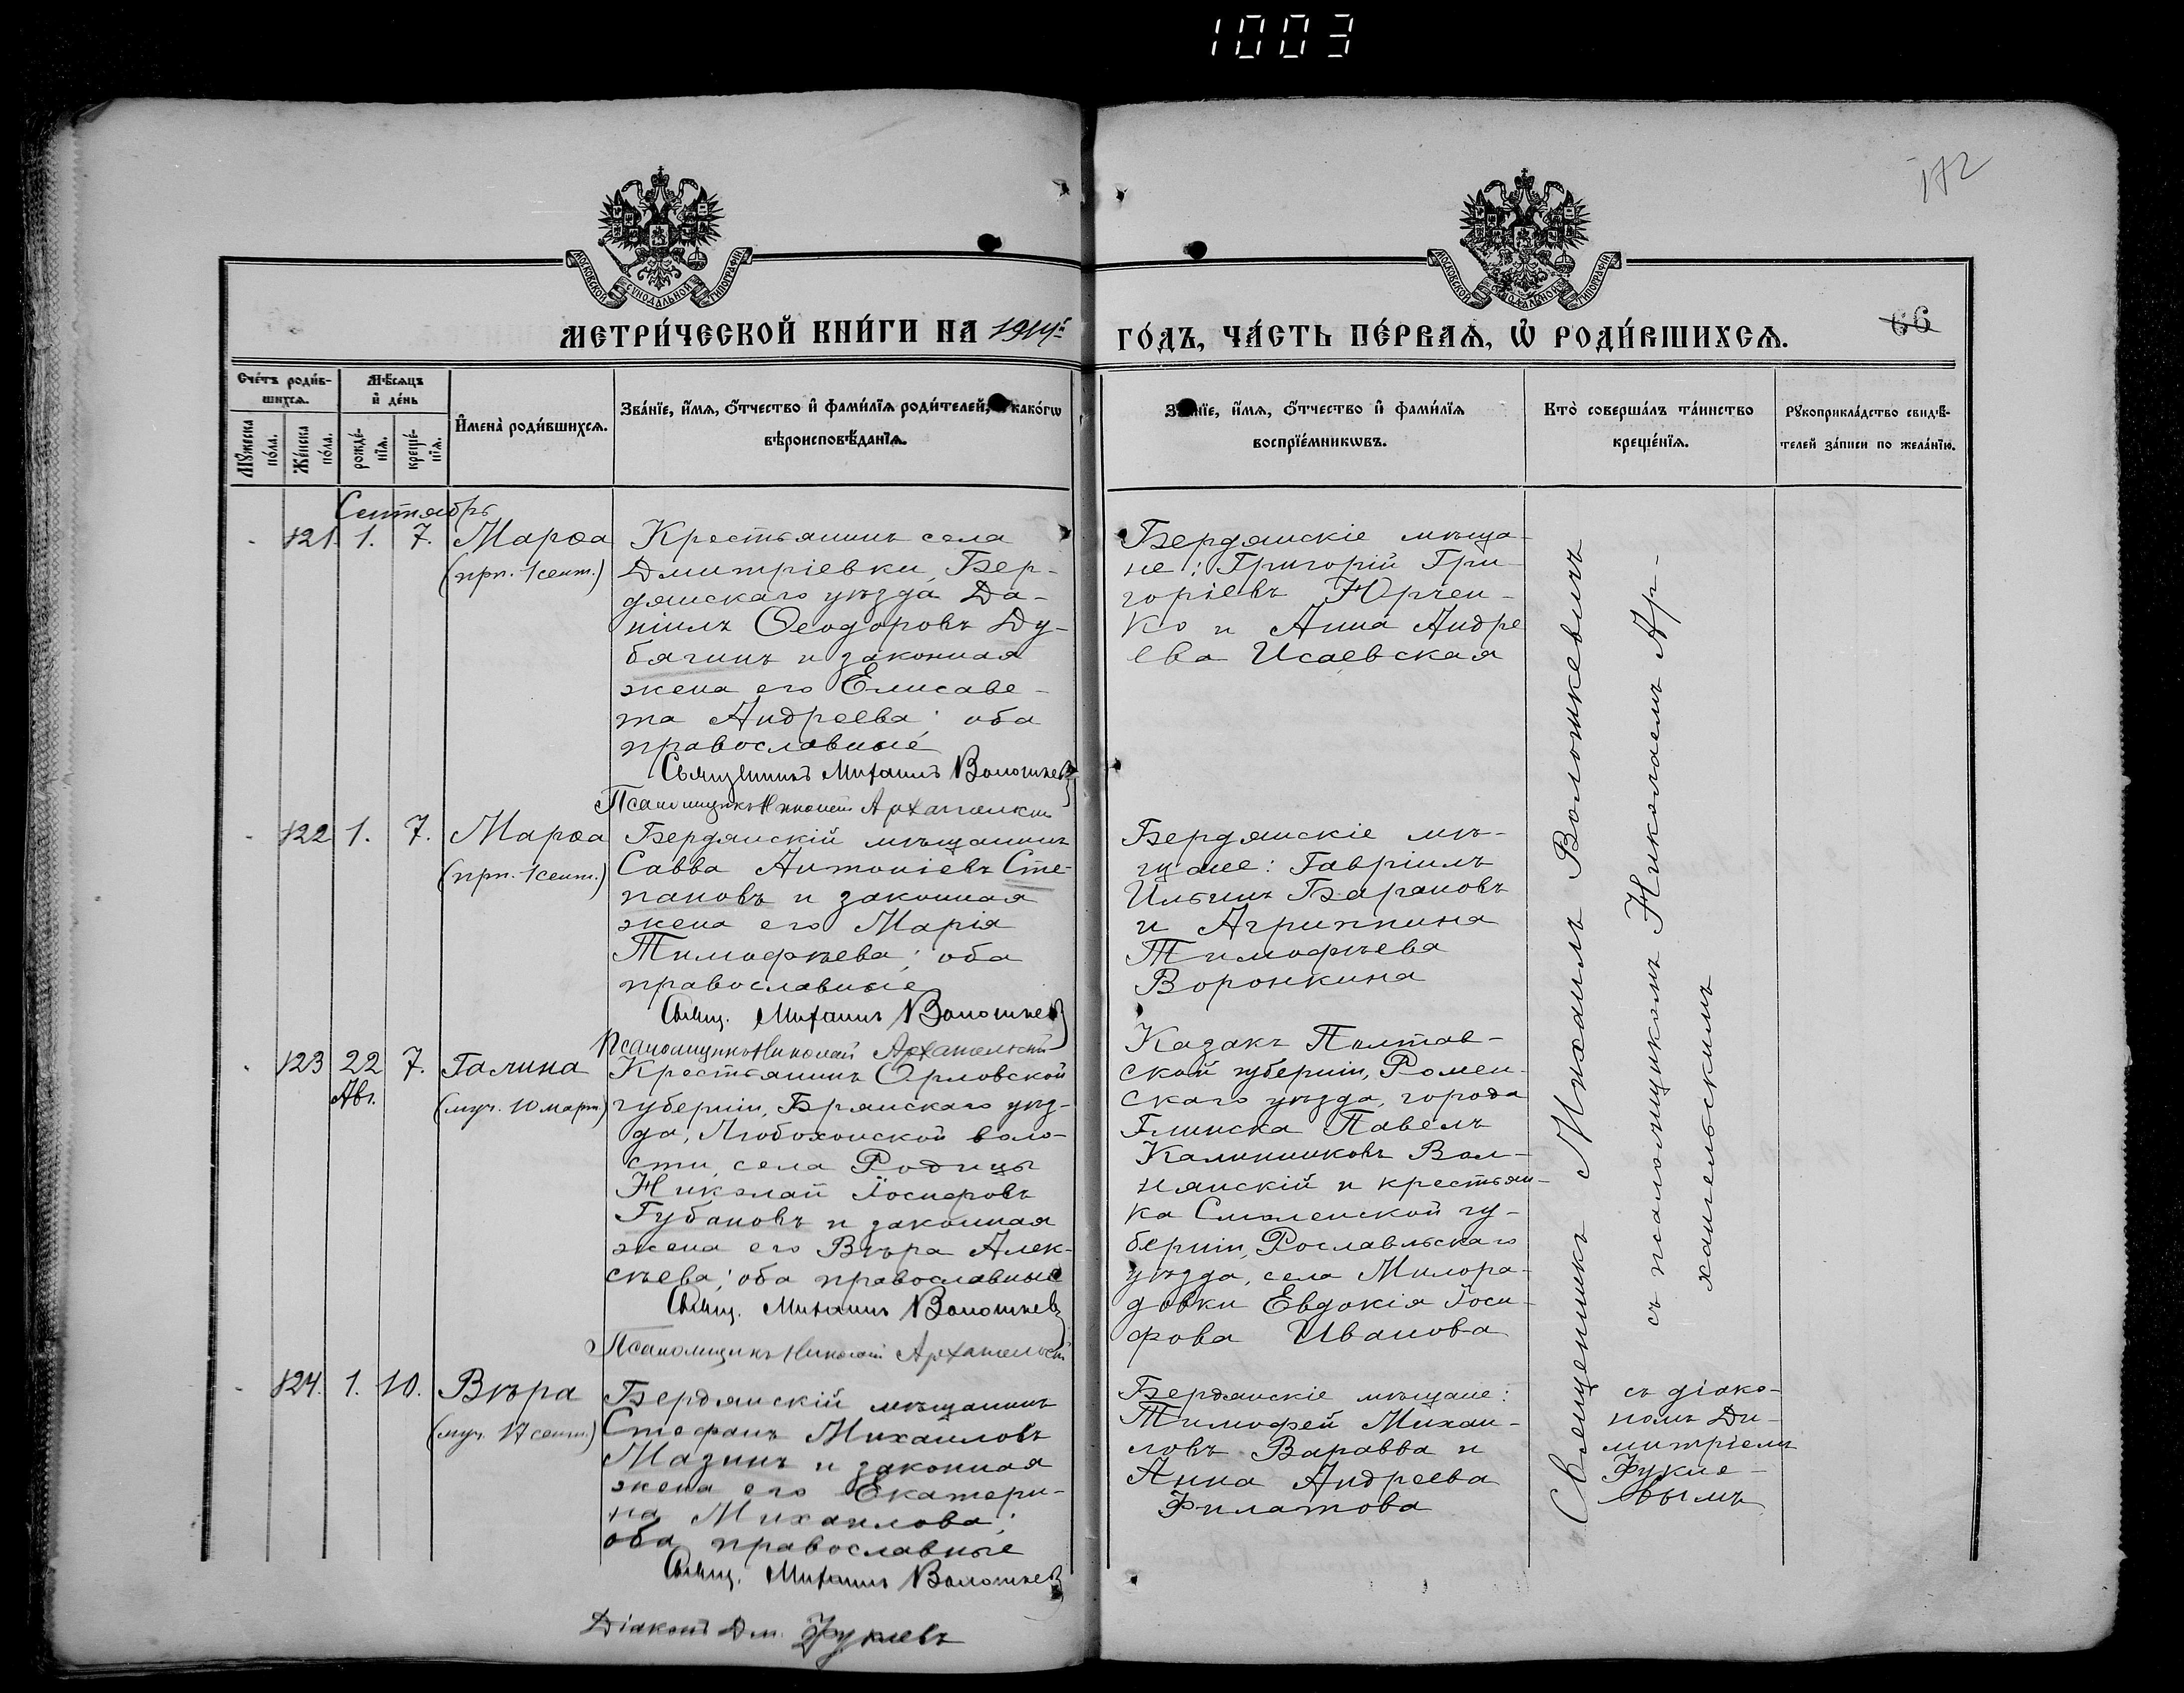 1003
172
МОСКОВСКОЙ СѴНОДАЛЬНОЙ ТИПОГРАФІИ
МОСКОВСКОЙ СѴНОДАЛЬНОЙ ТИПОГРАФІИ
МЕТРИ́ЧЕСКОЙ КНИ́ГИ НА 1914й
ГО́ДЪ, ЧА́СТЬ ПЕ́РВАѦ, Ѡ҆ РОДИ́ВШИХСѦ.
66
Сче́тъ роди́в-
шихсѧ.
Мꙋ́жеска
по́ла.
Же́нска
по́ла.
Мѣ́сѧцъ
и҆ де́нь
рожде́-
нїѧ.
креще́-
нїѧ.
И҆мена̀ роди́вшихсѧ.
Зва́нїе, и҆́мѧ, ѻ҆́тчество и҆ фами́лїѧ роди́телей, и҆ како́гѡ
вѣроисповѣ́данїѧ.
Зва́нїе, и҆́мѧ, ѻ҆́тчество и҆ фами́лїѧ
воспрїе́мникѡвъ.
Кто̀ соверша́лъ та́инство
креще́нїѧ.
Рꙋкоприкла́дство свидѣ́-
телей за́писи по жела́нїю.
Сентябрь
121. 1. 7. Марѳа
(прп. 1 сент.)
Крестьянинъ села
Дмитріевки, Бер-
дянскаго уѣзда Да-
ніилъ Ѳеодоровъ Ду-
бягинъ и законная
жена его Елисаве-
та Андреева; оба
православные
Священникъ Михаилъ Волошкевичъ
Псаломщикъ Николай Архангельскій
Бердянскіе мѣща-
не: Григорій Гри-
горіевъ Юрчен-
ко и Анна Андре
ева Исаевская
122 1. 7. Марѳа
(прп. 1 сент.)
Бердянскій мѣщанинъ
Савва Антоніевъ Сте-
пановъ и законная
жена его Марія
Тимофѣева; оба
православные
Свящ. Михаилъ Волошкевичъ
Псаломщикъ Николай Архангельскій
Бердянскіе мѣ-
щане: Гавріилъ
Ильинъ Барановъ
и Агриппина
Тимофѣева
Воронкина
123 22 7. Галина
Авг. (муч. 10 март.)
Крестьянинъ Орловской
губерніи, Брянскаго уѣз-
да, Любохонской воло-
сти, села Родицы
Николай Іосифовъ
Губановъ и законная
жена его Вѣра Алек-
сѣева; оба православные
Свящ. Михаилъ Волошкевичъ
Псаломщикъ Николай Архангельскій
Казакъ Полтав-
ской губерніи, Ромен-
скаго уѣзда, города
Глинска Павелъ
Калинниковъ Вол-
нянскій и крестьян-
ка Смоленской гу-
берніи, Рославльскаго
уѣзда, села Милора-
довки Евдокія Іоси-
фова Иванова
124. 1. 10. Вѣра
(муч. 17 сент.)
Бердянскій мѣщанинъ
Стефанъ Михаиловъ
Мазинъ и законная
жена его Екатери-
на Михаилова;
оба православные
Свящ. Михаилъ Волошкевичъ
Діаконъ Дм. Фуклевъ
Бердянскіе мѣщане:
Тимофей Михаи-
ловъ Варавва и
Анна Андреева
Филатова
Священникъ Михаилъ Волошкевичъ
съ псаломщикомъ Николаемъ Ар-
хангельскимъ
съ діако-
номъ Ди-
митріемъ
Фукле-
вымъ